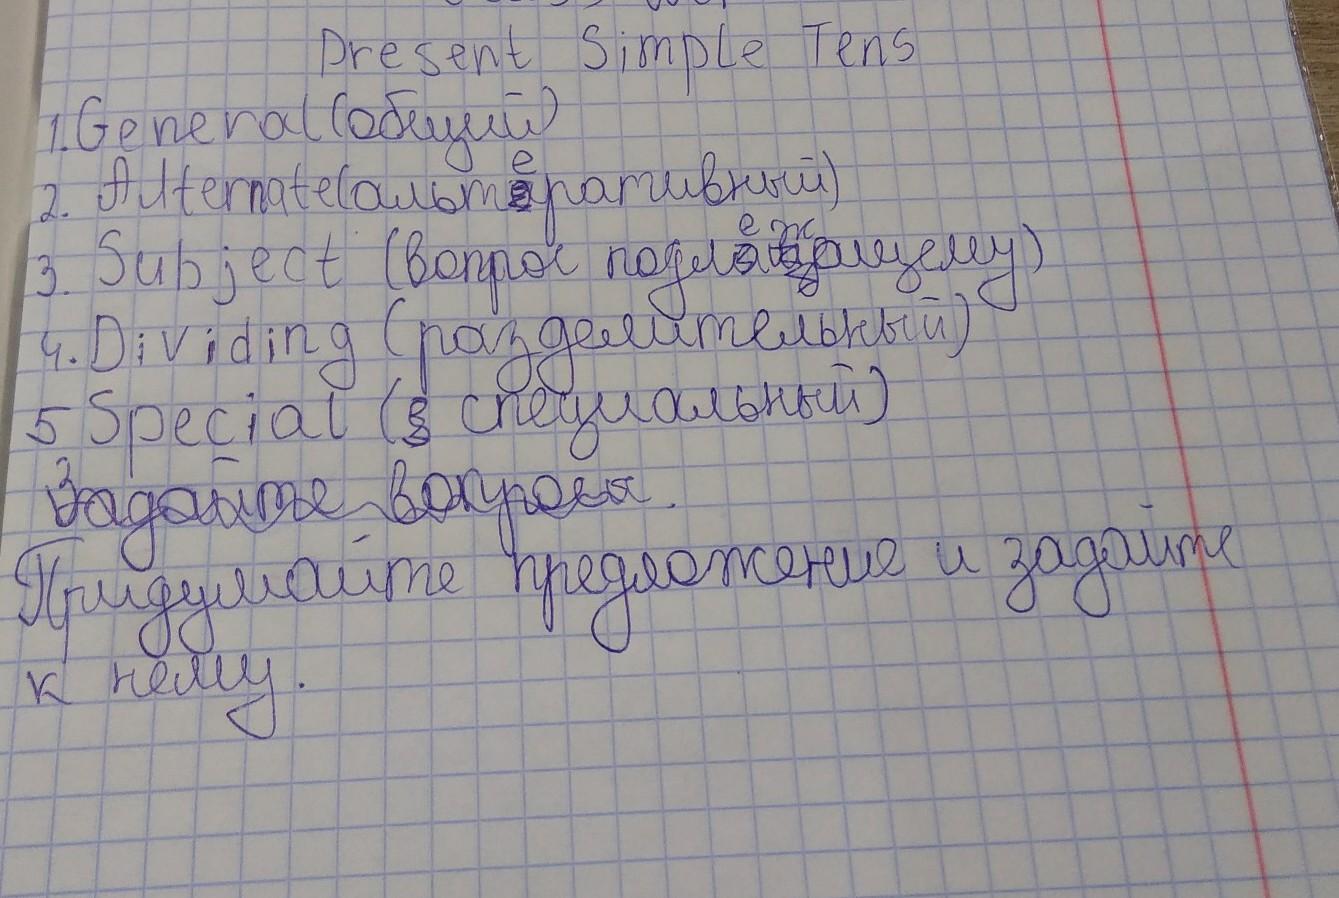 Present Simple Tens
1. General (общий)
2. Alternate (альтеративный)
3. Subject (вопрос подлежащему)
4. Dividing (разделительный)
5 Special (специальный)
Задайте вопросы.
Придумайте предложение и задайте
к нему.